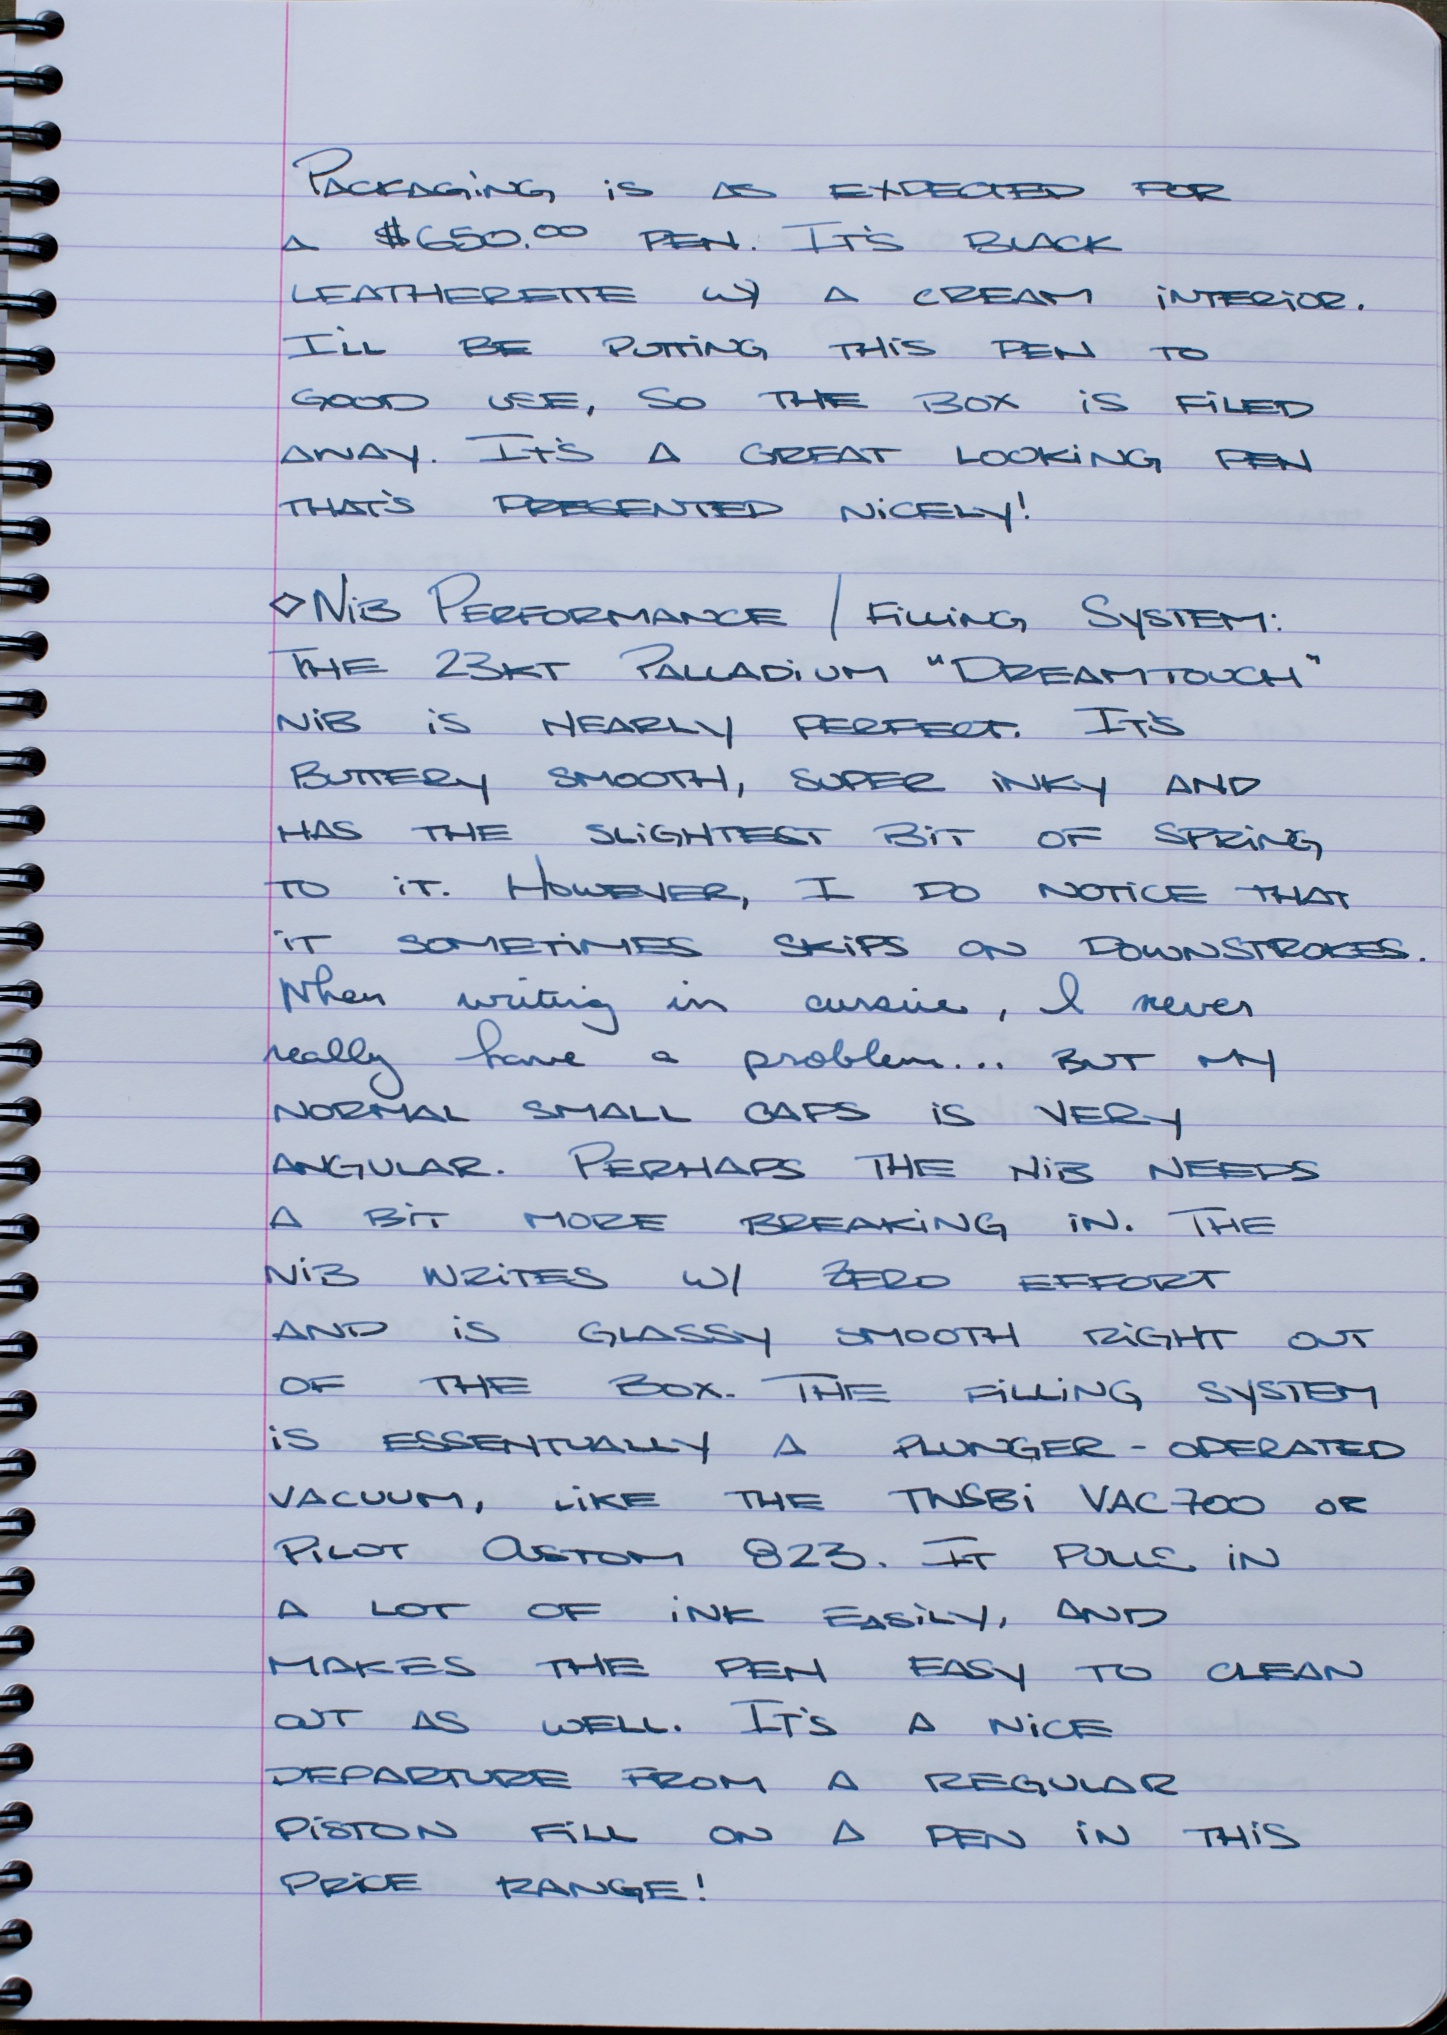 Packaging is as expected for
a $650.00 pen. It's black
leatherette w/ a cream interior.
I'll be putting this pen to
good use, so the box is filed
away. It's a great looking pen
that's presented nicely!
◇Nib Performance / Filling System:
The 23kt Palladium "Dreamtouch"
nib is nearly perfect. It's
buttery smooth, super inky and
has the slightest bit of spring
to it. However, I do notice that
it sometimes skips on downstrokes.
When writing in cursive, I never
really have a problem... but my
normal small caps is very
angular. Perhaps the nib needs
a bit more breaking in. The
nib writes w/ zero effort
and is glassy smooth right out
of the box. The filling system
is essentually a plunger-operated
vacuum, like the TWSBi VAC700 or
Pilot Custom 823. It pulls in
a lot of ink easily, and
makes the pen easy to clean
out as well. It's a nice
departure from a regular
piston fill on a pen in this
price range!